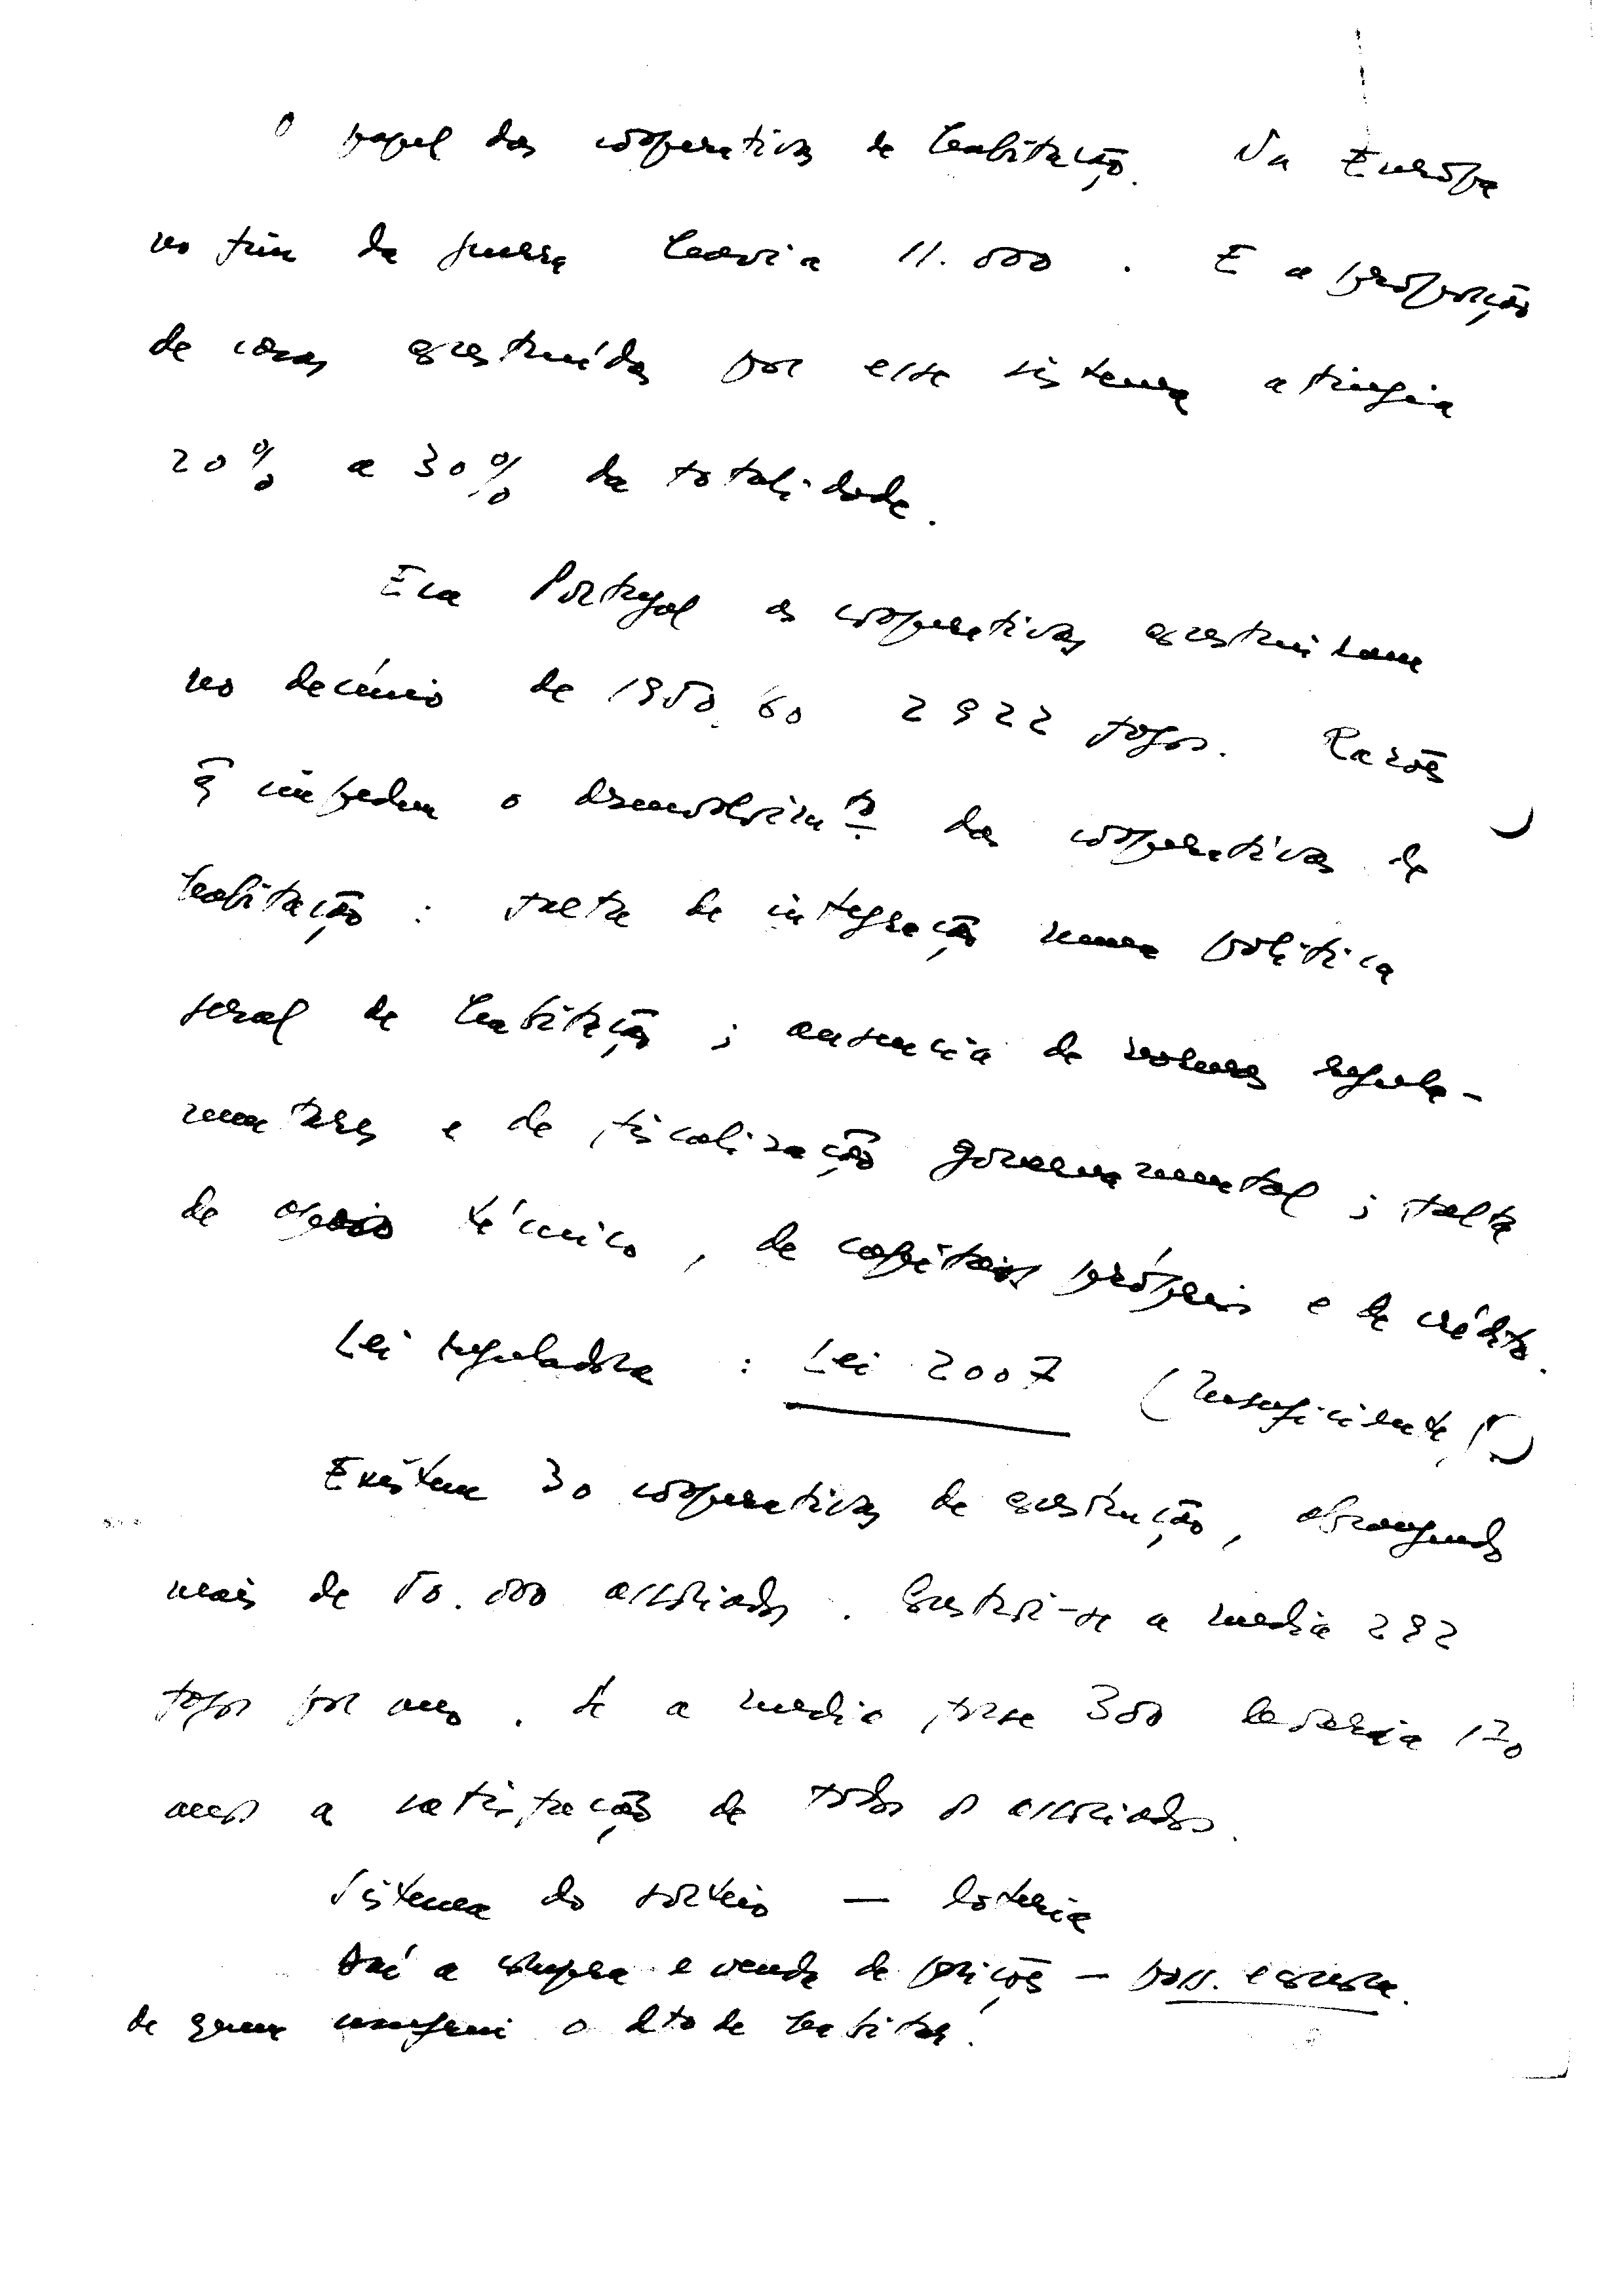 O papel das cooperativas de habitação. Na Europa
no fim da guerra havia 11.000. E a proporção
de casas construídas por esse sistema atingia
20% a 30% da totalidade.
Em Portugal as cooperativas construiram
no decénio de 1950.60 2922 fogos. Razões
q̃ impedem o desenvolvimto das cooperativas de
habitação: falta de integração numa política
geral de habitação; ausencia de normas regula-
mentares e de fiscalização governamental; falta
de apoio técnico, de capitais próprios e de crédito.
Lei reguladora: Lei 2007 (insuficiente!)
Existem 30 cooperativas de construção, abrangendo
mais de 50.000 associados. Constroi-se a media 292
fogos por ano. Se a media fosse 300 levaria 170
anos a satisfação de todos os associados.
Sistema do sorteio — lotaria
Daí a compra e venda de posições — poss. econom.
de quem conseguiu o dto de habitar.